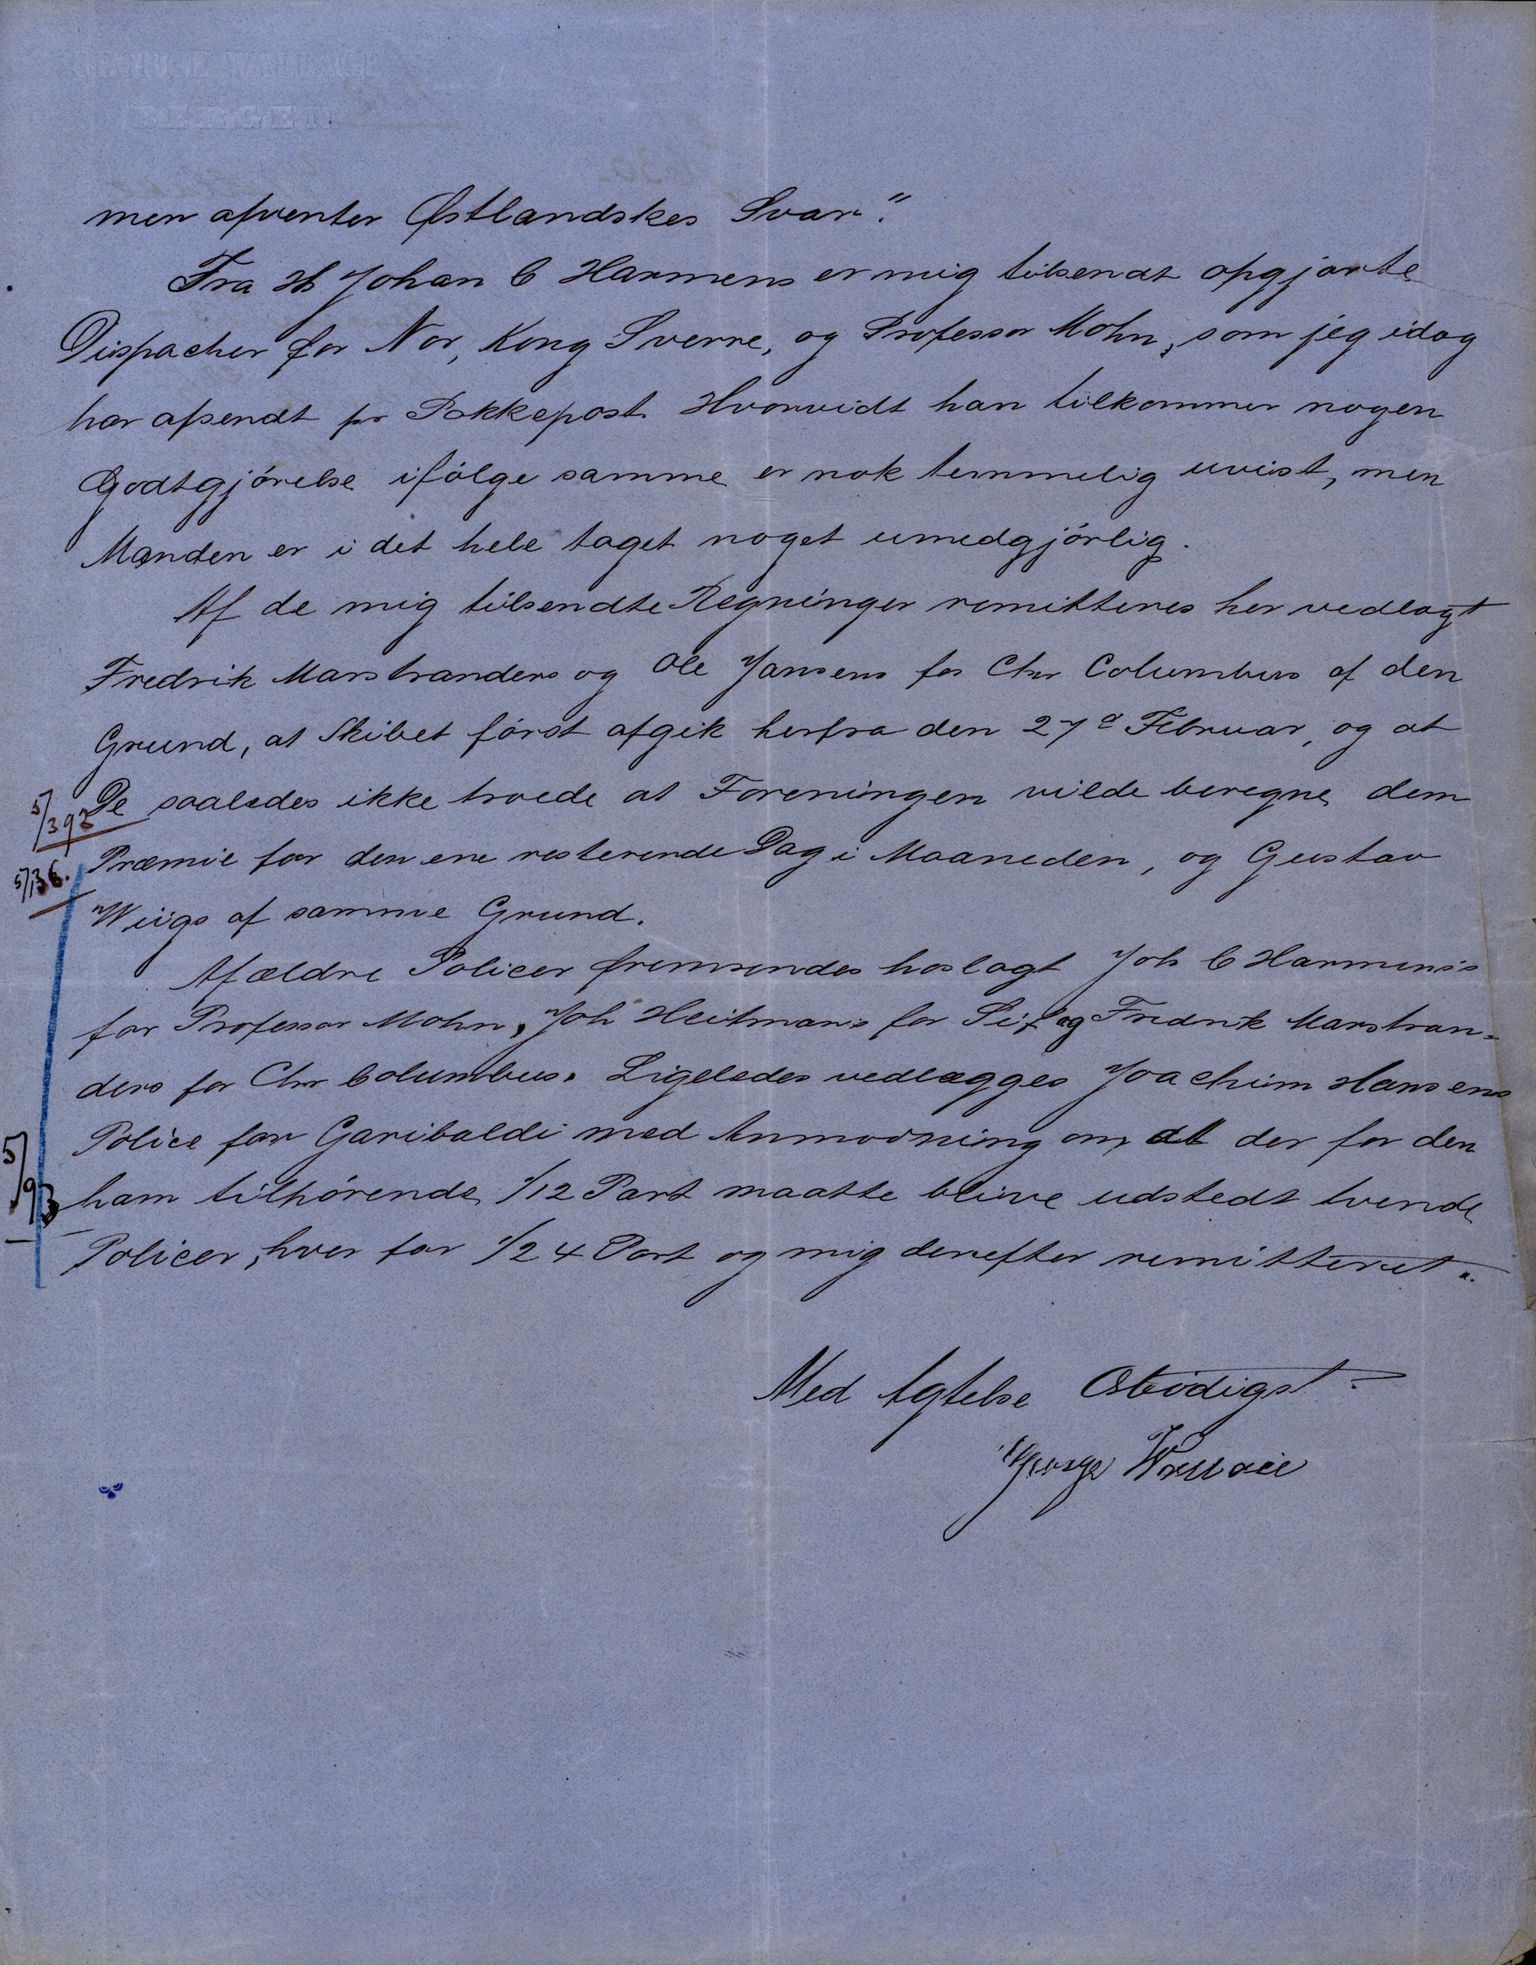 men afventer Østlandskes Svar."
Fra Hr Johan C Harmens er mig tilsendt opgjorte
Dispacher for Nor, Kong Sverre, og Professor Mohn, som jeg idag
har afsendt pr Pakkepost. Hvorvidt han tilkommer nogen
Godtgjørelse ifølge samme er nok temmelig uvist, men
Manden er i det hele taget noget umedgjørlig.
Af de mig tilsendte Regninger remitteres her vedlagt
Fredrik Marstranders og Ole Jansens for Chr Columbus af den
Grund, at Skibet først afgik herfra den 27d Februar, og at
De saaledes ikke troede at Foreningen vilde beregne dem
5/392
Præmie for den ene resterende Dag i Maaneden, og Gustav
5/136.
Wiigs af samme Grund.
Af ældre Policer fremsendes hoslagt Joh C Harmens's
for Professor Mohn, Joh Heitmans for Sif og Fredrik Marstran=
ders for Chr Columbus. Ligeledes vedlægges Joachim Hansens
Police for Garibaldi med Anmodning om, at der for den
5/93
ham tilhørende 1/12 Part maatte blive udstedt tvende
Policer, hver for 1/24 Part og mig derefter remitteret.
Med Agtelse Ærbødigst
George Wallace